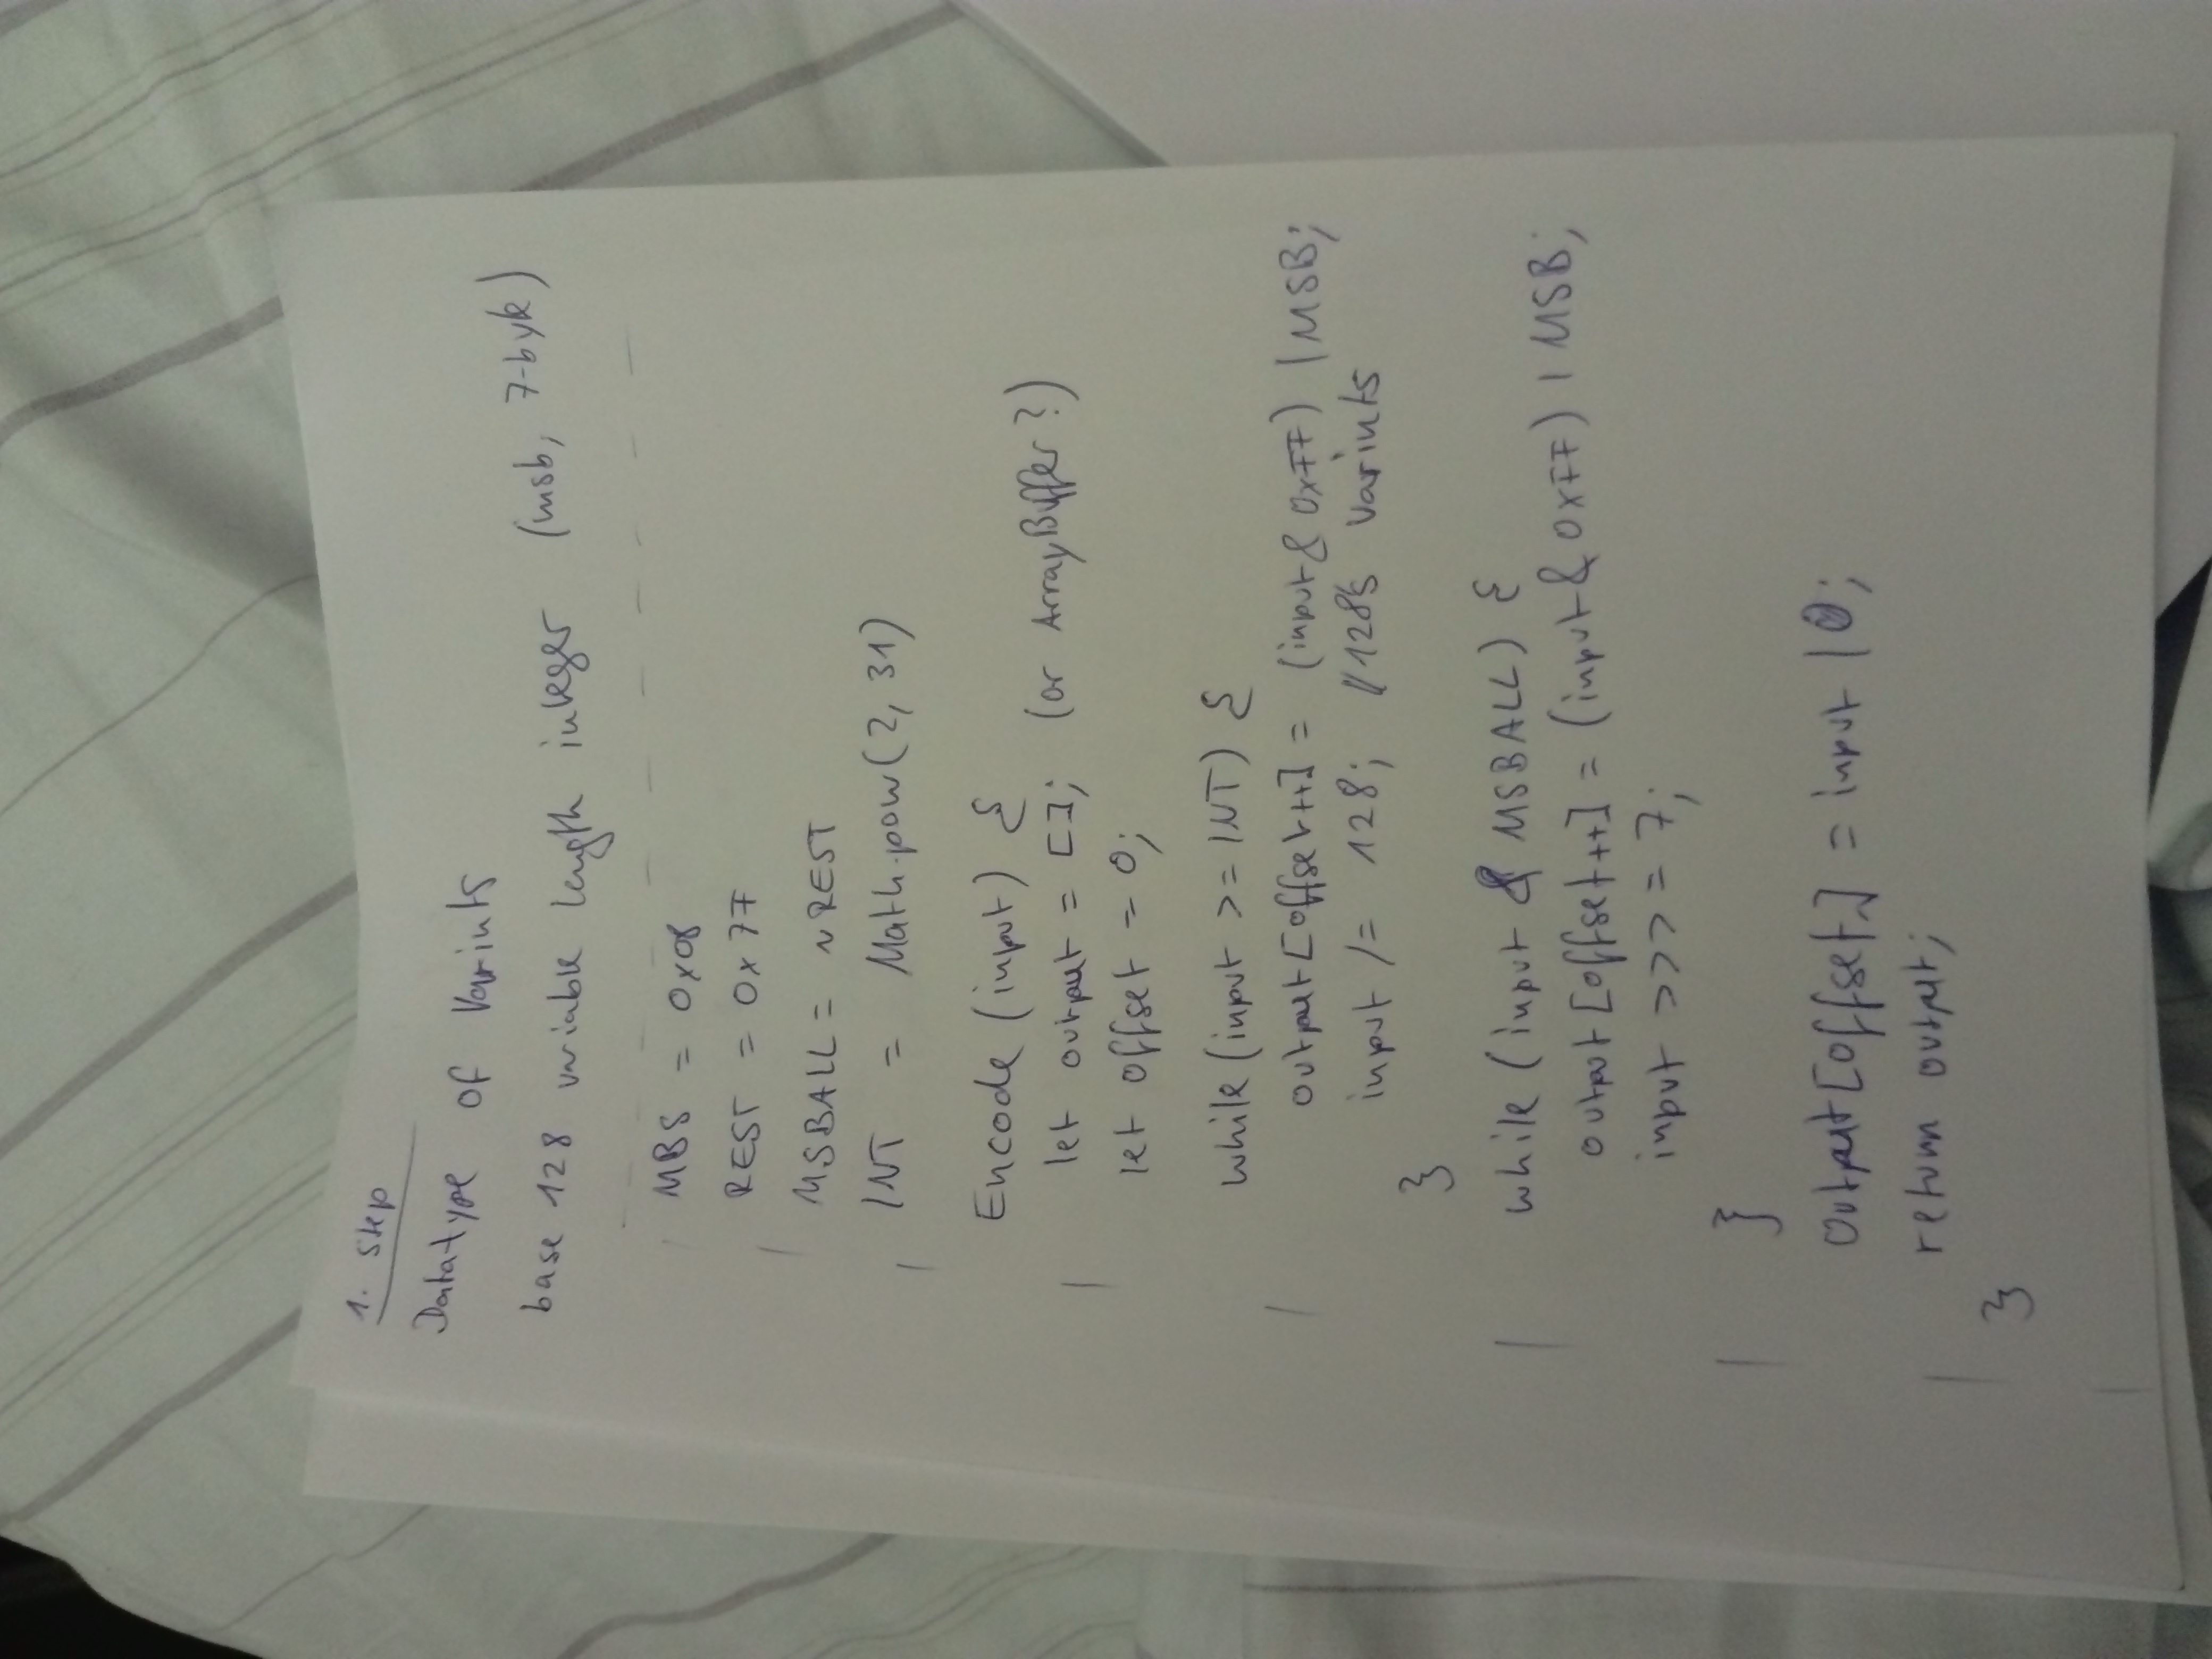 1. Step
Datatype of Varints
base 128 variable length integer (msb, 7-byte)
MBS = 0x08
REST = 0x7F
MSBALL = ~REST
INT = Math.pow(2, 31)
Encode (input) {
let output = []; (or ArrayBuffer?)
let offset = 0;
while (input >= INT) {
output[offset++] = (input & 0xFF) | MSB;
input /= 128; // 128 varints
}
while (input & MSBALL) {
output[offset++] = (input & 0xFF) | MSB;
input >>>= 7;
}
output[offset] = input | 0;
return output;
}